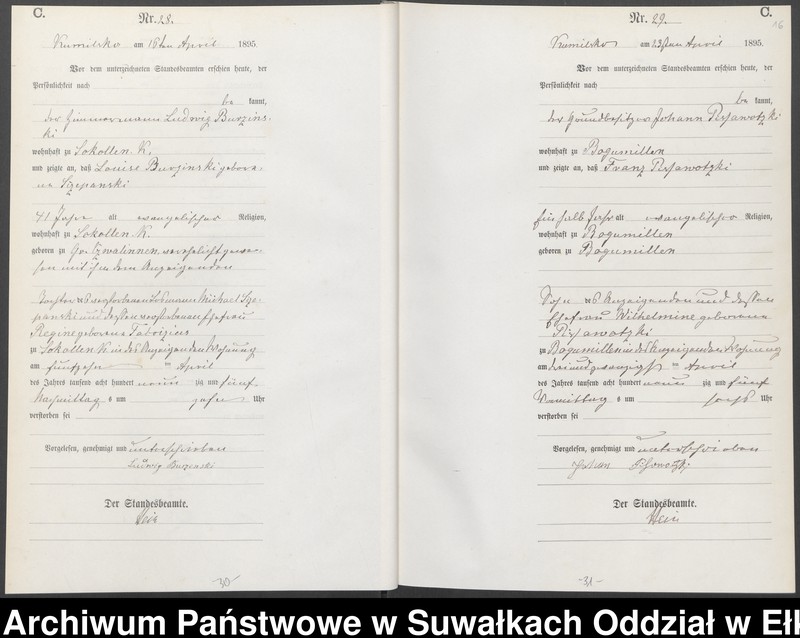 C.
Nr. 28.
Kumilsko am 16ten April 1895.
Vor dem unterzeichneten Standesbeamten erschien heute, der
Persönlichkeit nach
be kannt,
der Zimmermann Ludwig Burzins-
ki
wohnhaft zu Sokollen K.
und zeigte an, daß Louise Burzinski gebore-
ne Szepanski
41 Jahre alt evangelischer Religion,
wohnhaft zu Sokollen K.
geboren zu Gr. verehelicht gewe-
sen mit dem Anzeigenden
Tochter des verstorbenen Losmann Michael Sze-
panski und dessen verstorbenen Ehefrau
Regine geborene Fabrizius
zu Sokollen K. in des Anzeigenden Wohnung
am fünfzehn ten April
des Jahres tausend acht hundert neun zig und fünf
Nachmittag s um zehn Uhr
verstorben sei
Vorgelesen, genehmigt und unterschrieben
Ludwig Burzinski
Der Standesbeamte.
-30-
C.
16
Nr. 29.
Kumilsko am 23sten April 1895.
Vor dem unterzeichneten Standesbeamten erschien heute, der
Persönlichkeit nach
be kannt,
der Grundbesitzer Johann
wohnhaft zu Bogumillen
und zeigte an, daß Franz
ein halb Jahr alt evangelischer Religion,
wohnhaft zu Bogumillen
geboren zu Bogumillen
Sohn des Anzeigenden und dessen
Ehefrau Wilhelmine geborene
zu Bogumillen in des Anzeigenden Wohnung
am dreiundzwanzigsten April
des Jahres tausend acht hundert neun zig und fünf
Vormittag s um sechs Uhr
verstorben sei
Vorgelesen, genehmigt und unterschrieben
Johann
Der Standesbeamte.
-31-
Archiwum Państwowe w Suwałkach Oddział w Eł